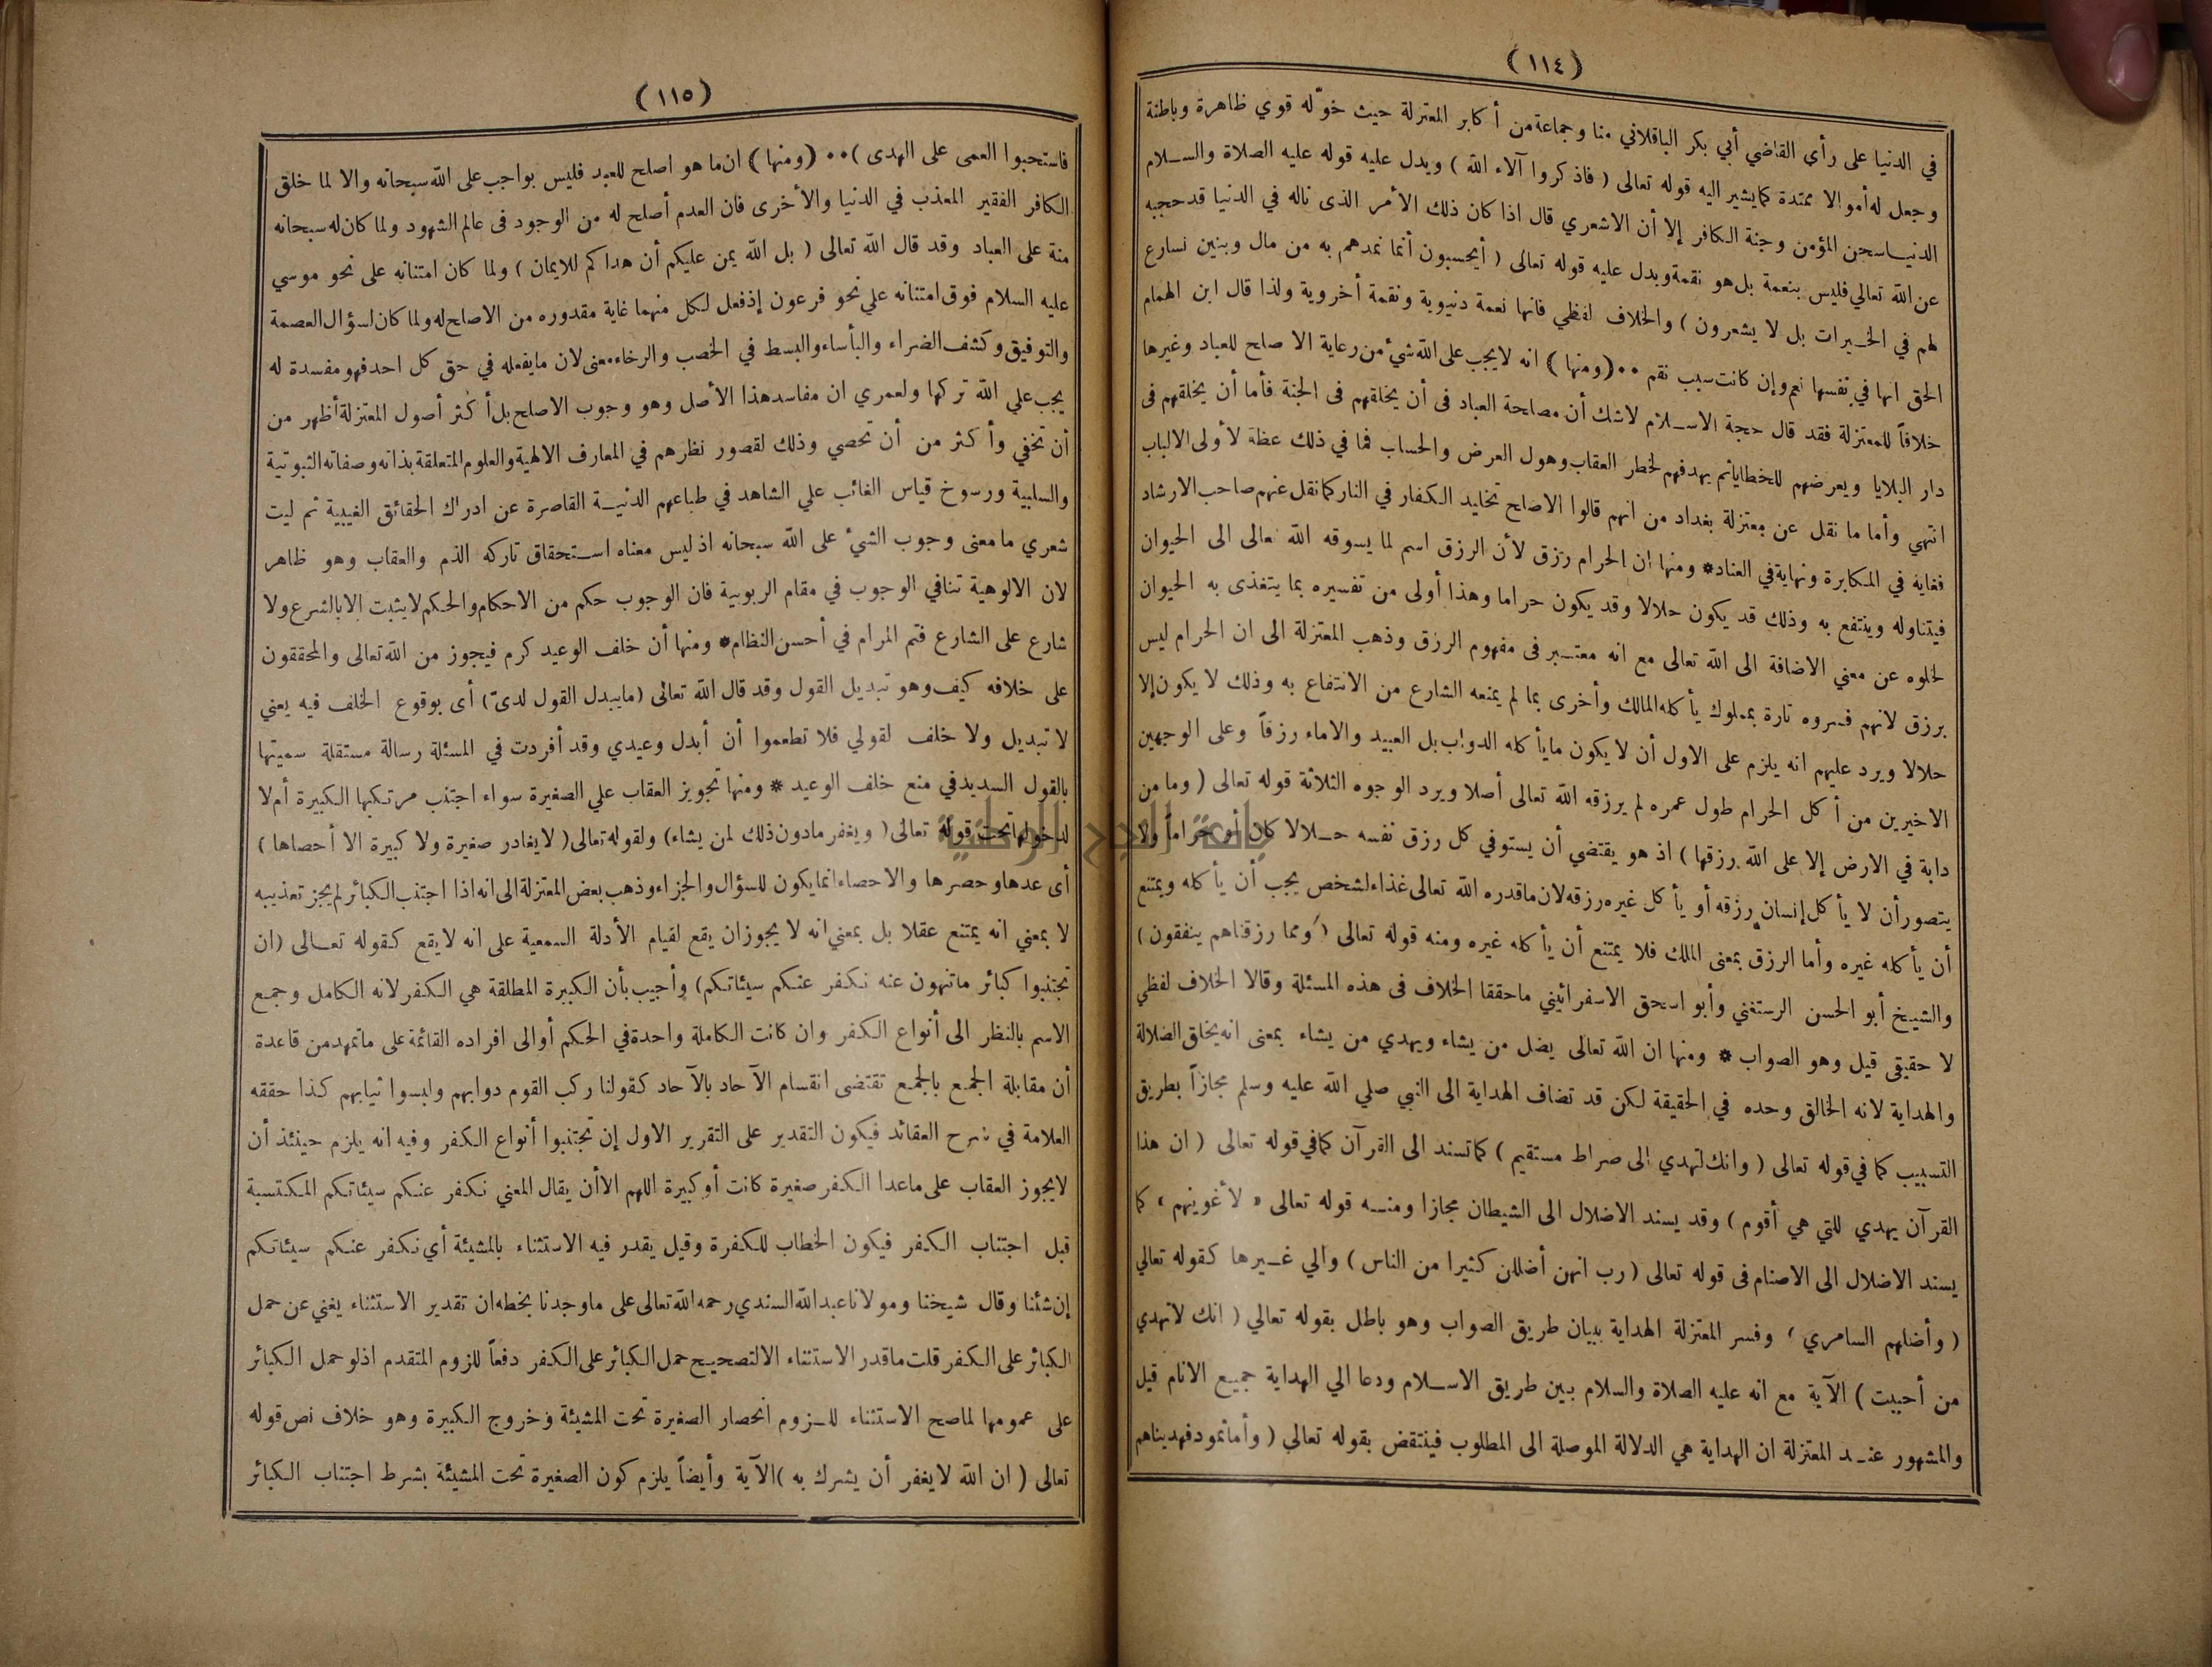 (١١٤)
في الدنيا على رأي القاضي أبي بكر الباقلاني منا وجماعة من أكابر المعتزلة حيث خوّله قوي ظاهرة وباطنة
وجعل له أموالا ممتدة كما يشير اليه قوله تعالى ( فاذكروا آلاء الله ) ويدل عليه قوله عليه الصلاة والسلام
الدنيا سجن المؤمن وجنة الكافر إلا أن الاشعري قال اذا كان ذلك الأمر الذى ناله في الدنيا قد حجبه
عن الله تعالي فليس بنعمة بل هو نقمة ويدل عليه قوله تعالى ( أيحسبون أنما نمدهم به من مال وبنين نسارع
لهم في الخيرات بل لا يشعرون ) والخلاف لفظي فانها نعمة دنيوية ونقمة أخروية ولذا قال ابن الهمام
الحق انها في نفسها نعم وإن كانت سبب نقم ٠٠ ( ومنها ) انه لا يجب على الله شيء من رعاية الا صلح للعباد وغيرها
خلافاً للمعتزلة فقد قال حجة الاسلام لاشك أن مصلحة العباد فى أن يخلقهم فى الجنة فأما أن يخلقهم فى
دار البلايا ويعرضهم للخطايا ثم يهدفهم لخطر العقاب وهول العرض والحساب فما في ذلك عظة لأولى الالباب
انتهي وأما ما نقل عن معتزلة بغداد من انهم قالوا الاصلح تخليد الكفار في النار كما نقل عنهم صاحب الارشاد
فغاية في المكابرة ونهاية في العناد* ومنها ان الحرام رزق لأن الرزق اسم لما يسوقه الله تعالى الى الحيوان
فيتناوله وينتفع به وذلك قد يكون حلالا وقد يكون حراما وهذا أولى من تفسيره بما يتغذى به الحيوان
لخلوه عن معني الاضافة الى الله تعالى مع انه معتبر فى مفهوم الرزق وذهب المعتزلة الى ان الحرام ليس
برزق لانهم فسروه تارة بمملوك يأكله المالك وأخرى بما لم يمنعه الشارع من الانتفاع به وذلك لا يكون إلا
حلالا ويرد عليهم انه يلزم على الاول أن لا يكون مايأكله الدواب بل العبيد والاماء رزقاً وعلى الوجهين
الاخيرين من أكل الحرام طول عمره لم يرزقه الله تعالى أصلا ويرد الوجوه الثلاثة قوله تعالى ( وما من
دابة في الارض إلا على الله رزقها ) اذ هو يقتضي أن يستوفي كل رزق نفسه حلالا كان أو حراماً ولا
يتصور أن لا يأكل إنسان رزقه أو يأكل غيره رزقه لان ماقدره الله تعالى غذاء لشخص يجب أن يأكله ويمتنع
أن يأكله غيره وأما الرزق بمعنى الملك فلا يمتنع أن يأكله غيره ومنه قوله تعالى ( ومما رزقناهم ينفقون )
والشيخ أبو الحسن الرستغني وأبو اسحق الاسفرائيني ماحققا الخلاف فى هذه المسئلة وقالا الخلاف لفظي
لا حقيقى قيل وهو الصواب * ومنها ان الله تعالى يضل من يشاء ويهدي من يشاء بمعنى انه يخلق الضلالة
والهداية لانه الخالق وحده في الحقيقة لكن قد تضاف الهداية الى النبي صلي الله عليه وسلم مجازاً بطريق
التسبيب كما في قوله تعالى ( وانك لتهدي الى صراط مستقيم ) كما تسند الى القرآن كما في قوله تعالى ( ان هذا
القرآن يهدي للتي هي أقوم ) وقد يسند الاضلال الى الشيطان مجازا ومنه قوله تعالى « لأغوينهم » كما
يسند الاضلال الى الاصنام فى قوله تعالى ( رب انهن أضللن كثيرا من الناس ) والي غيرها كقوله تعالي
( وأضلهم السامري ) وفسر المعتزلة الهداية ببيان طريق الصواب وهو باطل بقوله تعالي ( انك لاتهدي
من أحببت ) الآية مع انه عليه الصلاة والسلام بين طريق الاسلام ودعا الي الهداية جميع الانام قيل
والمشهور عند المعتزلة ان الهداية هي الدلالة الموصلة الى المطلوب فينتقض بقوله تعالي ( وأما ثمود فهديناهم
(١١٥)
فاستحبوا العمى على الهدى )٠٠ ( ومنها ) ان ما هو اصلح للعبد فليس بواجب على الله سبحانه والا لما خلق
الكافر الفقير المعذب في الدنيا والأخرى فان العدم أصلح له من الوجود فى عالم الشهود ولما كان له سبحانه
منة على العباد وقد قال الله تعالى ( بل الله يمن عليكم أن هداكم للايمان ) ولما كان امتنانه على نحو موسي
عليه السلام فوق امتنانه علي نحو فرعون إذ فعل لكل منهما غاية مقدوره من الاصلح له ولما كان لسؤال العصمة
والتوفيق وكشف الضراء والبأساء والبسط في الخصب والرخاء معنى لان مايفعله في حق كل احد فهو مفسدة له
يجب علي الله تركها ولعمري ان مفاسد هذا الأصل وهو وجوب الاصلح بل أكثر أصول المعتزلة أظهر من
أن تخفي وأكثر من أن تحصي وذلك لقصور نظرهم في المعارف الالهية والعلوم المتعلقة بذاته وصفاته الثبوتية
والسلبية ورسوخ قياس الغائب علي الشاهد في طباعهم الدنية القاصرة عن ادراك الحقائق الغيبية ثم ليت
شعري ما معنى وجوب الشيء على الله سبحانه اذ ليس معناه استحقاق تاركه الذم والعقاب وهو ظاهر
لان الالوهية تنافي الوجوب في مقام الربوبية فان الوجوب حكم من الاحكام والحكم لايثبت الا بالشرع ولا
شارع على الشارع فتم المرام في أحسن النظام* ومنها أن خلف الوعيد كرم فيجوز من الله تعالى والمحققون
على خلافه كيف وهو تبديل القول وقد قال الله تعالى (مايبدل القول لديّ) أى بوقوع الخلف فيه يعني
لا تبديل ولا خلف لقولي فلا تطعموا أن أبدل وعيدي وقد أفردت في المسئلة رسالة مستقلة سميتها
بالقول السديد في منع خلف الوعيد * ومنها تجويز العقاب علي الصغيرة سواء اجتنب مرتكبها الكبيرة أم لا
لدخولها تحت قوله تعالى ( ويغفر مادون ذلك لمن يشاء) ولقوله تعالى ( لايغادر صغيرة ولا كبيرة الا أحصاها )
أى عدها وحصرها والاحصاء انما يكون للسؤال والجزاء وذهب بعض المعتزلة الى انه اذا اجتنب الكبائر لم يجز تعذيبه
لا بمعني انه يمتنع عقلا بل بمعني انه لا يجوز ان يقع لقيام الأدلة السمعية على انه لا يقع كقوله تعالى (ان
تجتنبوا كبائر ماتنهون عنه نكفر عنكم سيئاتكم) وأجيب بأن الكبيرة المطلقة هي الكفر لانه الكامل وجمع
الاسم بالنظر الى أنواع الكفر وان كانت الكاملة واحدة في الحكم أو الى افراده القائمة على ماتمهد من قاعدة
أن مقابلة الجمع بالجمع تقتضى انقسام الآحاد بالآحاد كقولنا ركب القوم دوابهم ولبسوا ثيابهم كذا حققه
العلامة في شرح العقائد فيكون التقدير على التقرير الاول إن تجتنبوا أنواع الكفر وفيه انه يلزم حينئذ أن
لايجوز العقاب على ماعدا الكفر صغيرة كانت أو كبيرة اللهم الا أن يقال المعني نكفر عنكم سيئاتكم المكتسبة
قبل اجتناب الكفر فيكون الخطاب للكفرة وقيل يقدر فيه الاستثناء بالمشيئة أي نكفر عنكم سيئاتكم
إن شئنا وقال شيخنا ومولانا عبد الله السندي رحمه الله تعالى على ماوجدنا بخطه ان تقدير الاستثناء يغني عن حمل
الكبائر على الكفر قلت ماقدر الاستثناء الا لتصحيح حمل الكبائر على الكفر دفعاً للزوم المتقدم اذ لو حمل الكبائر
على عمومها لماصح الاستثناء للزوم انحصار الصغيرة تحت المشيئة وخروج الكبيرة وهو خلاف نص قوله
تعالى ( ان الله لايغفر أن يشرك به )الآية وأيضاً يلزم كون الصغيرة تحت المشيئة بشرط اجتناب الكبائر
جامعة النجاح الوطنية